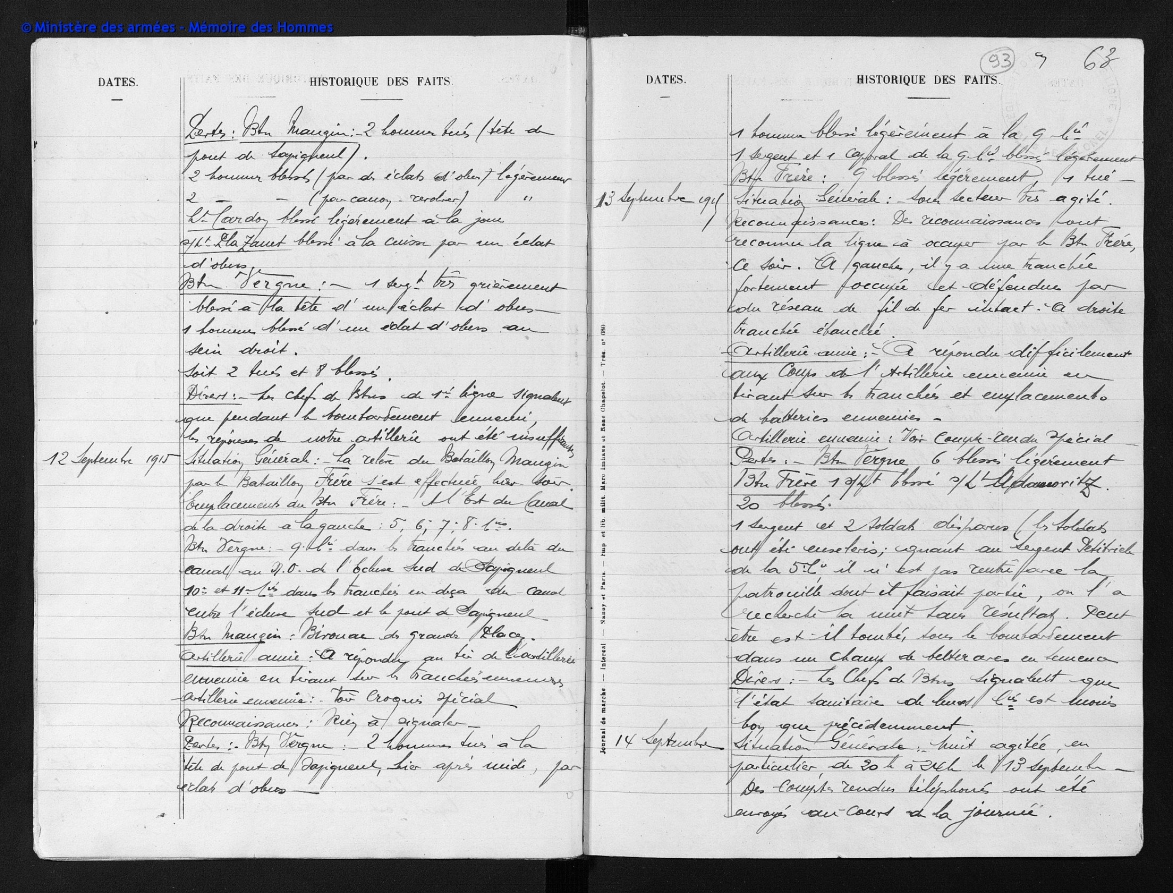 © Ministère des armées - Mémoire des Hommes
DATES.
HISTORIQUE DES FAITS.
Pertes : Btn Mangin : - 2 hommes tués (tête de
pont de Sapigneul).
2 hommes blessés (par des éclats d'obus) légèrement
2 - - (par canon-revolver) "
Lt Cardon blessé légèrement à la joue
s/Lt Pla Zanet blessé à la cuisse par un éclat
d'obus.
Btn Vergne : - 1 sergt très grièvement
blessé à la tête d'un éclat d'obus
1 homme blessé d'un éclat d'obus au
sein droit.
Soit 2 tués et 8 blessés.
Divers : - Les chefs de Btns de 1re ligne signalent
que pendant le bombardement ennemi,
les réponses de notre artillerie ont été insuffisantes
12 Septembre 1915
Situation Générale : La relève du Bataillon Mangin
par le Bataillon Frère s'est effectuée hier soir
Emplacements du Btn Frère : - A l'Est du Canal
de la droite à la gauche : 5, 6, 7, 8. Cies.
Btn Vergne : - 9e Cie dans les tranchées au delà du
canal au N.O. de l'écluse Sud de Sapigneul
10e et 11e Cies dans les tranchées en deçà du canal
entre l'écluse Sud et le pont de Sapigneul
Btn Mangin : Bivouac des grandes Places.
Artillerie amie : A répondu au tir de l'artillerie
ennemie en tirant sur les tranchées ennemies
Artillerie ennemie : Voir Croquis spécial
Reconnaissances : Rien à signaler
Pertes : - Btn Vergne : - 2 hommes tués à la
tête de pont de Sapigneul, hier après midi, par
éclats d'obus
Journal de marche.
DATES.
HISTORIQUE DES FAITS.
93
63
1 homme blessé légèrement à la 9e Cie
1 sergent et 1 caporal de la 9e Cie blessés légèrement
Btn Frère : 9 blessés légèrement, 1 tué -
13 Septembre 1915
Situation Générale : Sous secteur très agité.
Reconnaissances : Des reconnaissances vont
reconnaître la ligne à occuper par le Btn Frère,
ce soir. A gauche, il y a une tranchée
fortement occupée et défendue par
du réseau de fil de fer intact. A droite
tranchée ébauchée.
Artillerie amie : - A répondu difficilement
aux Coups de l'Artillerie ennemie en
tirant sur les tranchées et emplacements
de batteries ennemies -
Artillerie ennemie : Voir Compte-rendu spécial -
Pertes : - Btn Vergne 6 blessés légèrement
Btn Frère 1 s/Lt blessé s/Lt Adamovitz.
20 blessés.
1 sergent et 2 soldats disparus (les soldats
ont été ensevelis ; quant au sergent Petitrich
de la 5e Cie il n'est pas rentré avec la
patrouille dont il faisait partie, on l'a
recherché la nuit sans résultat. Peut
être est-il tombé, sous le bombardement
dans un champ de betteraves en
Divers : - Les Chefs de Btns signalent que
l'état sanitaire de leurs Cies est moins
bon que précédemment
14 Septembre
Situation Générale : Nuit agitée, en
particulier, de 20h à 24h le 13 septembre -
Des Comptes rendus téléphonés ont été
envoyés au cours de la journée.